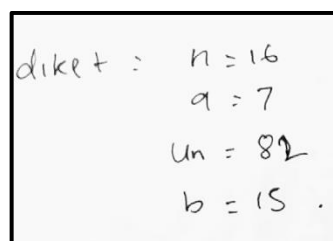 diket : n = 16
a = 7
Un = 82
b = 15 .